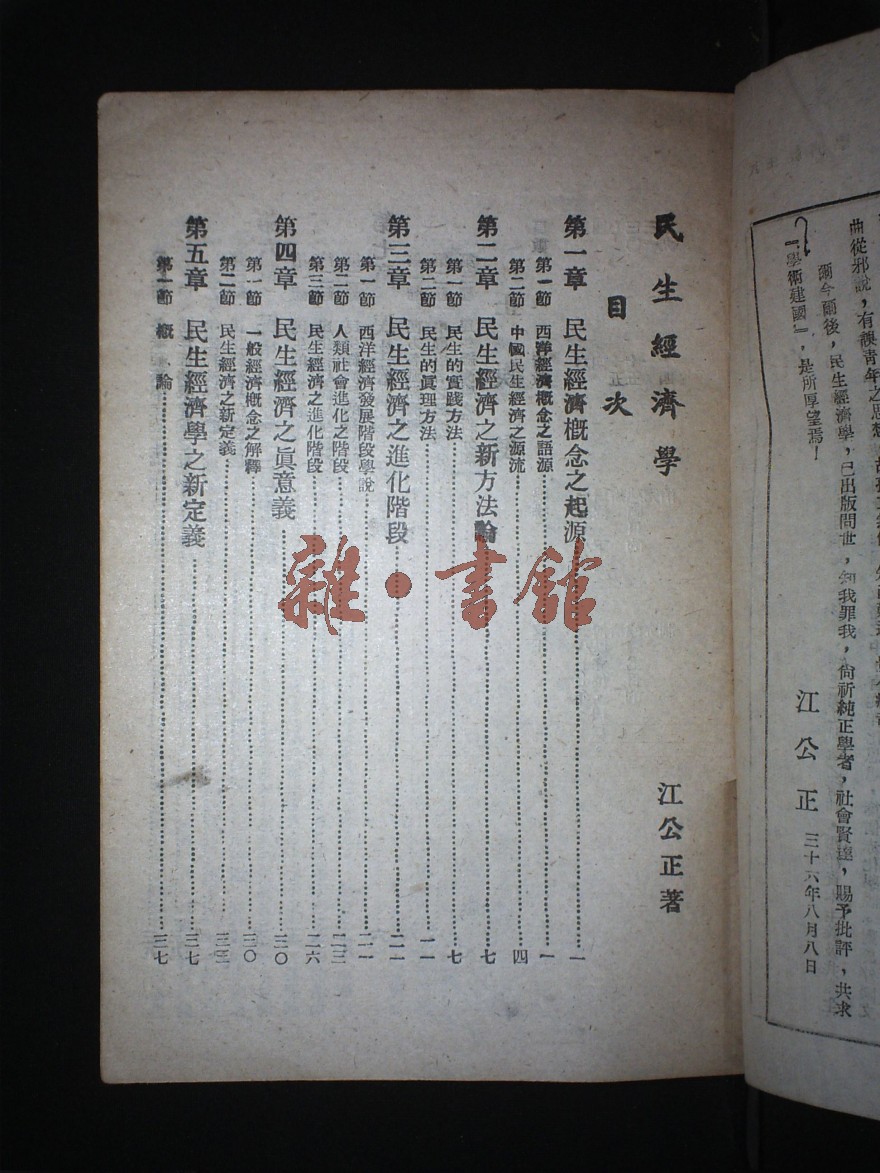 曲從邪說，有誤青年之思想
爾今爾後，民生經濟學，已出版問世，知我罪我，尙祈純正學者，社會賢達，賜予批評，共求
『學術建國』，是所厚望焉！
江公正 三十六年八月八日
民生經濟學 江公正著
目次
第一章 民生經濟概念之起源⋯⋯一
第一節 西洋經濟概念之語源⋯⋯一
第二節 中國民生經濟之源流⋯⋯四
第二章 民生經濟之新方法論⋯⋯七
第一節 民生的實踐方法⋯⋯七
第二節 民生的眞理方法⋯⋯一一
第三章 民生經濟之進化階段⋯⋯二一
第一節 西洋經濟發展階段學說⋯⋯二一
第二節 人類社會進化之階段⋯⋯二三
第三節 民生經濟之進化階段⋯⋯二六
第四章 民生經濟之眞意義⋯⋯三〇
第一節 一般經濟概念之解釋⋯⋯三〇
第二節 民生經濟之新定義⋯⋯三三
第五章 民生經濟學之新定義⋯⋯三七
第一節 概論⋯⋯三七
雜·書館